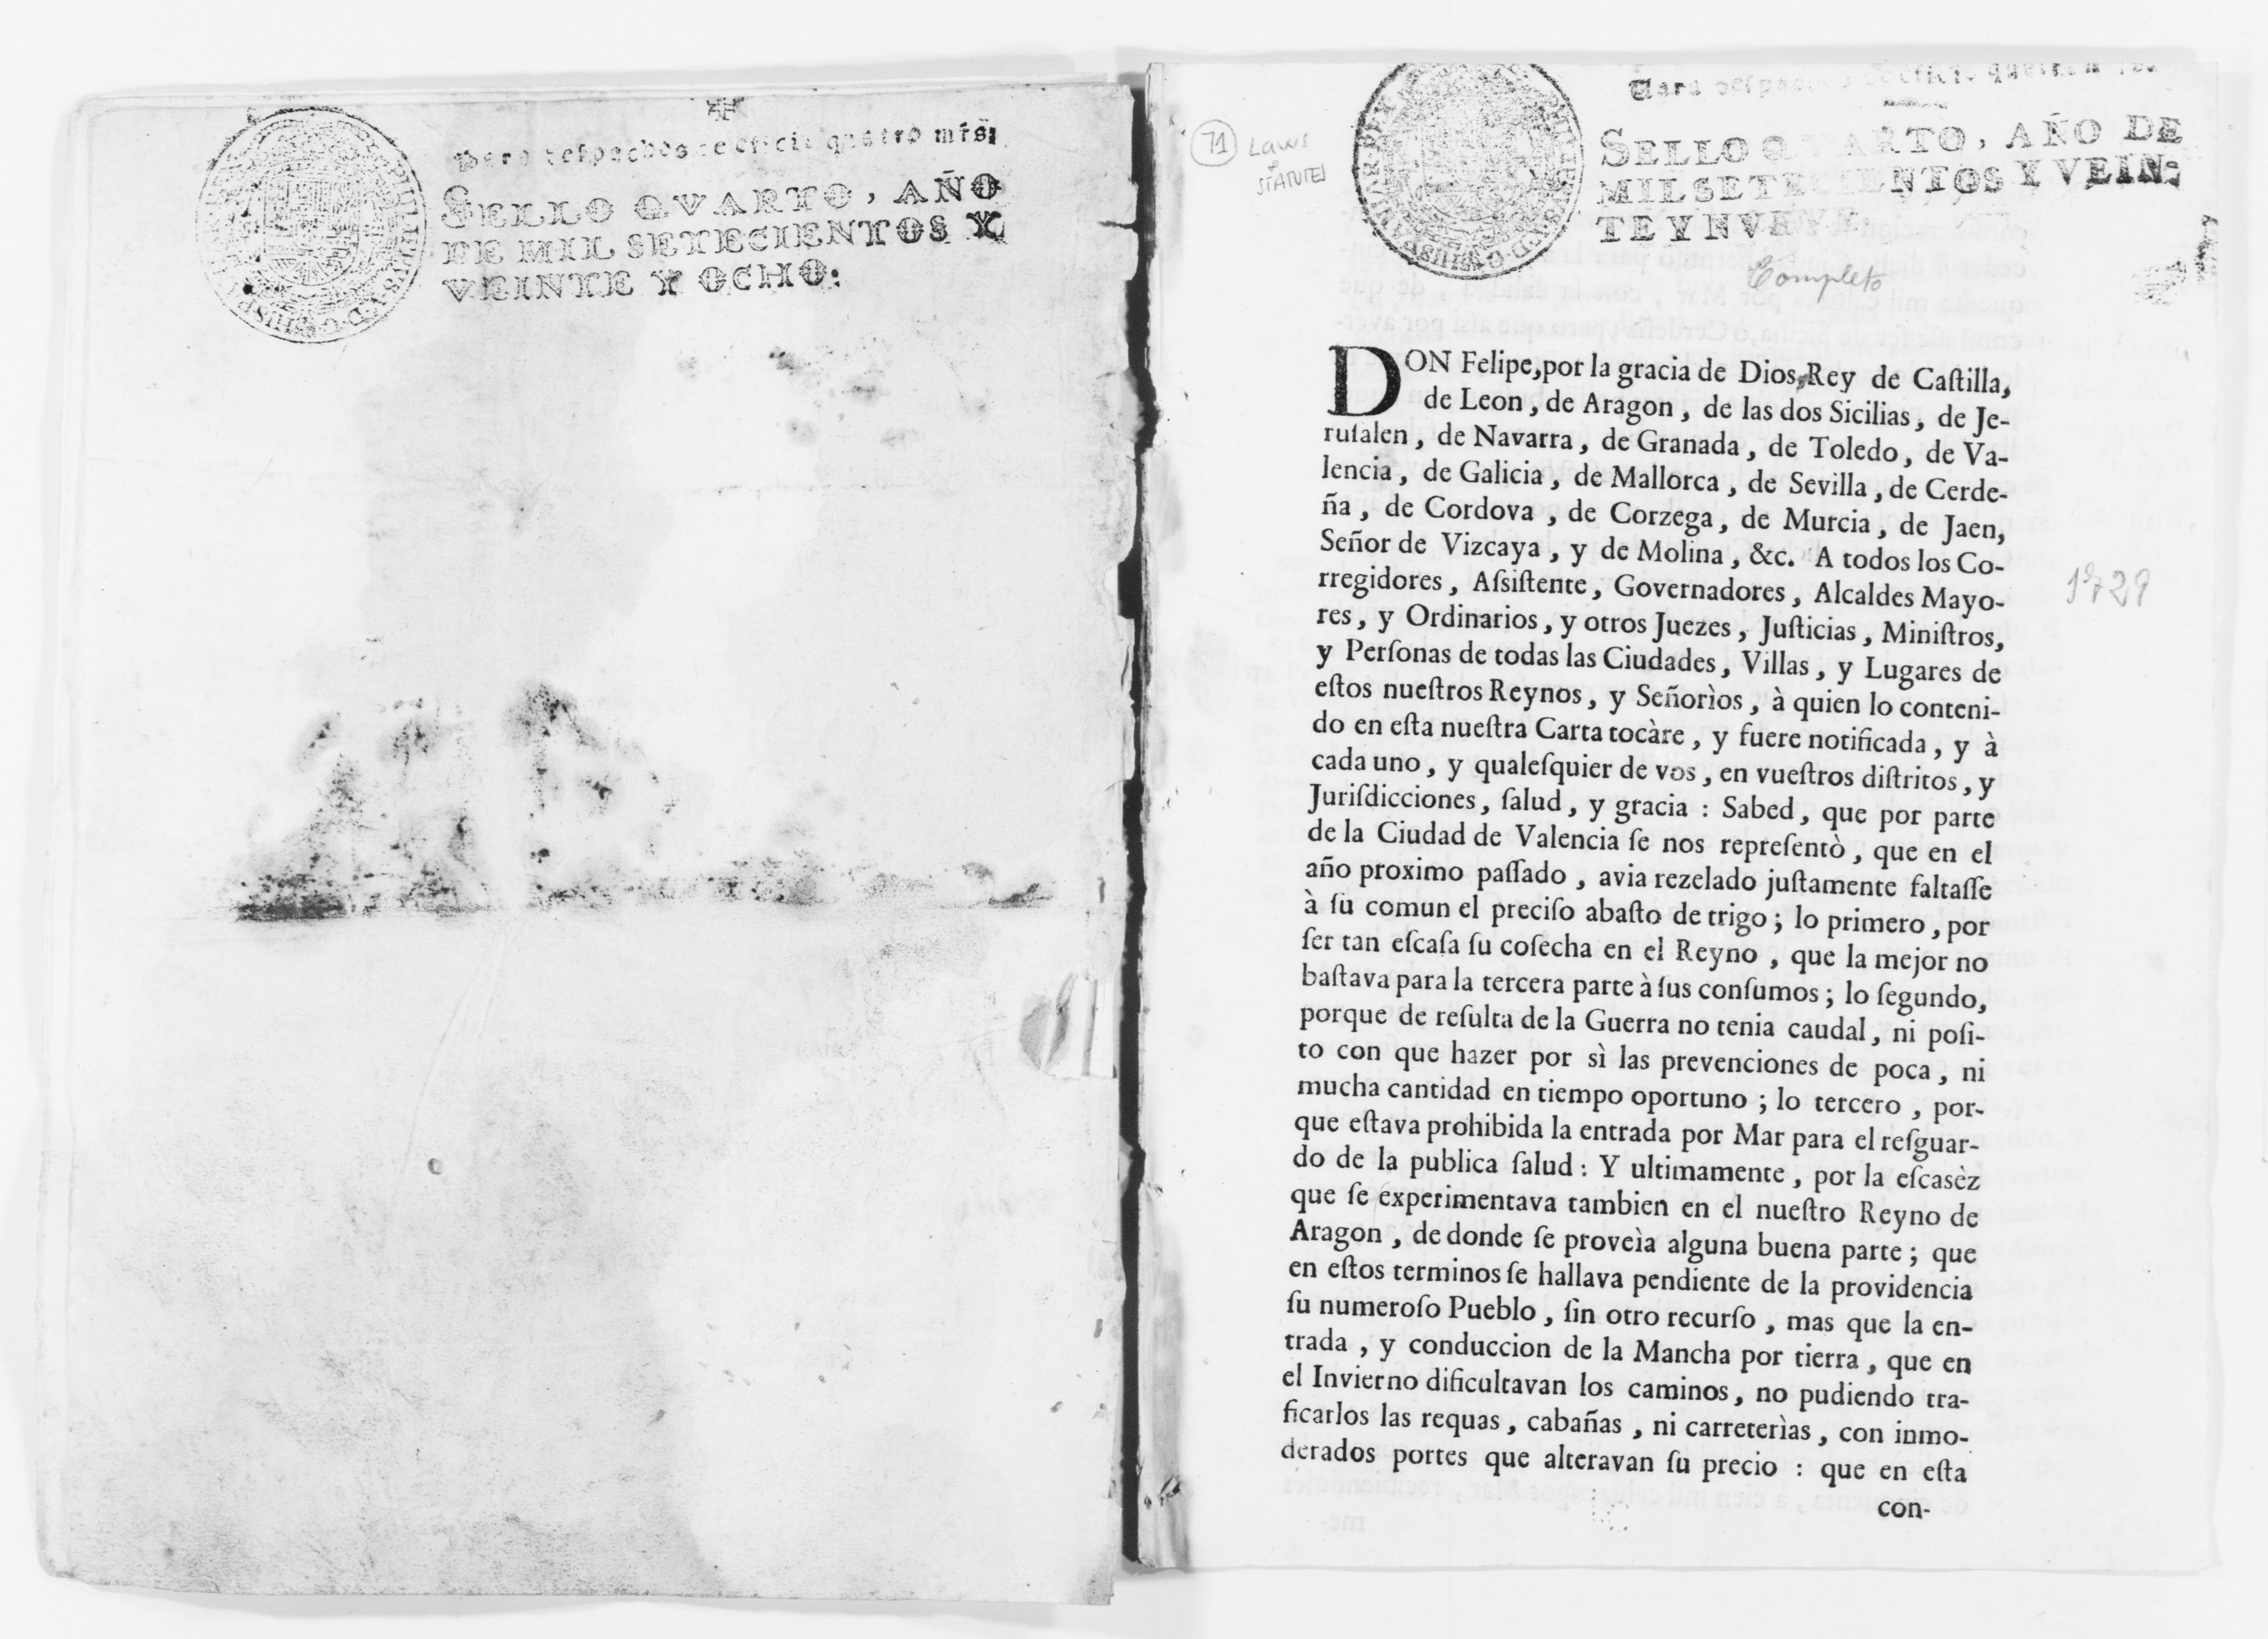 Para despachos de oficio quatro mrs.
SELLO QVARTO, AÑO
DE MIL SETECIENTOS Y
VEINTE Y OCHO:
71 Laws
+
STATUTES
Para despachos de oficio quatro
SELLO QVARTO, AÑO DE
MIL SETECIENTOS Y VEIN-
TE Y NVEVE.
Completo
DON Felipe, por la gracia de Dios, Rey de Caſtilla,
de Leon, de Aragon, de las dos Sicilias, de Je-
ruſalen, de Navarra, de Granada, de Toledo, de Va-
lencia, de Galicia, de Mallorca, de Sevilla, de Cerde-
ña, de Cordova, de Corzega, de Murcia, de Jaen,
Señor de Vizcaya, y de Molina, &c. A todos los Co-
rregidores, Aſsiſtente, Governadores, Alcaldes Mayo-
res, y Ordinarios, y otros Juezes, Juſticias, Miniſtros,
y Perſonas de todas las Ciudades, Villas, y Lugares de
eſtos nueſtros Reynos, y Señorìos, à quien lo conteni-
do en eſta nueſtra Carta tocàre, y fuere notificada, y à
cada uno, y qualeſquier de vos, en vueſtros diſtritos, y
Juriſdicciones, ſalud, y gracia : Sabed, que por parte
de la Ciudad de Valencia ſe nos repreſentò, que en el
año proximo paſſado, avia rezelado juſtamente faltaſſe
à ſu comun el preciſo abaſto de trigo; lo primero, por
ſer tan eſcaſa ſu coſecha en el Reyno, que la mejor no
baſtava para la tercera parte à ſus conſumos; lo ſegundo,
porque de reſulta de la Guerra no tenia caudal, ni poſi-
to con que hazer por sì las prevenciones de poca, ni
mucha cantidad en tiempo oportuno; lo tercero, por-
que eſtava prohibida la entrada por Mar para el reſguar-
do de la publica ſalud: Y ultimamente, por la eſcasèz
que ſe experimentava tambien en el nueſtro Reyno de
Aragon, de donde ſe proveìa alguna buena parte; que
en eſtos terminos ſe hallava pendiente de la providencia
ſu numeroſo Pueblo, ſin otro recurſo, mas que la en-
trada, y conduccion de la Mancha por tierra, que en
el Invierno dificultavan los caminos, no pudiendo tra-
ficarlos las requas, cabañas, ni carreterìas, con inmo-
derados portes que alteravan ſu precio : que en eſta
con-
1729